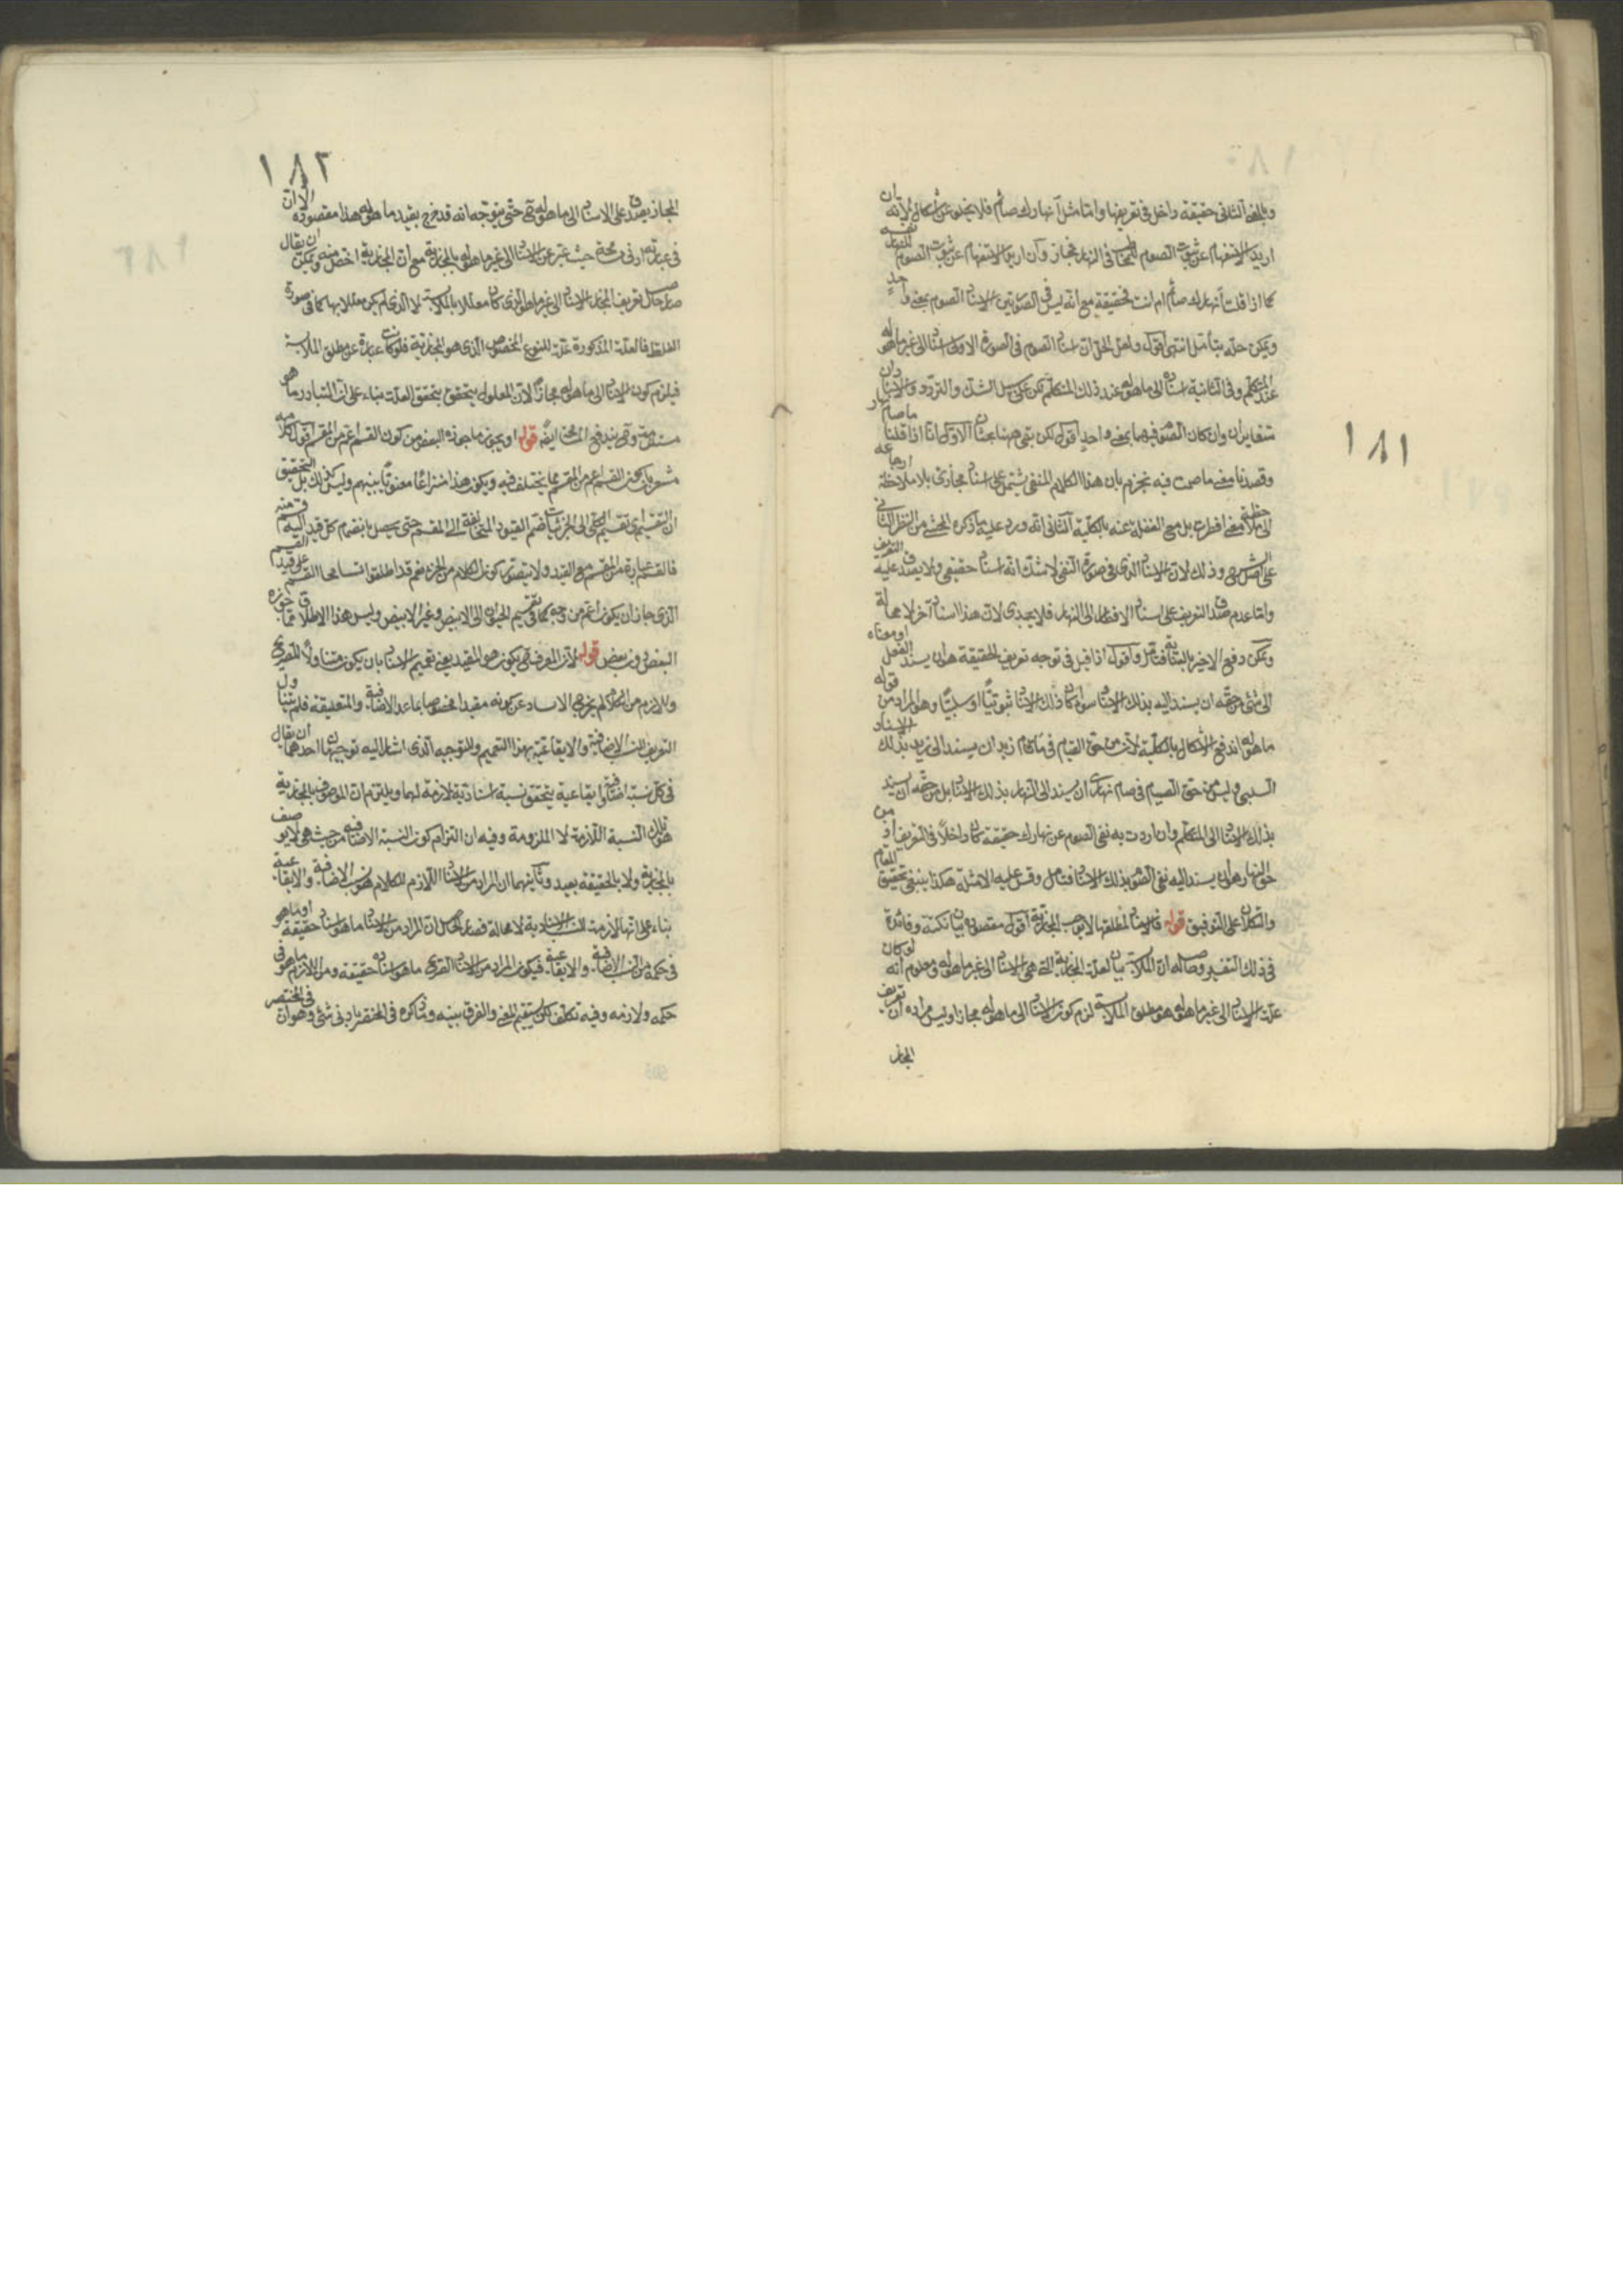 ١٨١
وبالمعنى الثاني حقيقة داخل في تعريفها وامّا مثل أنهارك صائم فلا يخلو عن اشكال لأنه ان
اريد الاستفهام عن ثبوت الصوم للمخاطب في النهار فمجاز وان اريد الاستفهام عن ثبوت الصوم للنهار نفسه
كما اذا قلت أنهارك صائم ام انت فحقيقة مع انه ليس في الصورتين الاسناد الصوم بمعنى واحد
ويمكن حله بتأمل انتهى اقول ولعل الحل ان اسناد الصوم في الصورة الاولى اسناد الى غير ما هو له
عند المتكلم وفي الثانية اسناده الى ما هو له عند ذلك المتكلم لكن على سبيل الشك والتردد والاسنادان
متغايران وان كان الصوم فيهما بمعنى واحد اقول لكن بقي ههنا بحثان الاول انّا اذا قلنا ما صام نهار
وقصدنا معنى ما صمت فيه نجزم بان هذا الكلام المنفي يشتمل على اسناد مجازي بلا ملاحظة
الى ملاحظة معنى افطرت بل مع الغفلة عنه بالكلية الثاني انه ورد عليه ما ذكره المحشي من النظر الثاني
على اصل الشرح وذلك لان الاسناد الذي في صورة النفي لا شك انه اسناد حقيقي ولا يصدق عليه التعريف
وامّا عدم صدق التعريف على اسناد الافطار الى النهار فلا يجدي لان هذا اسناد آخر لا محالة
ويمكن دفع الاخير بالتأمل فتأمل واقول اذا قيل في توجيه تعريف الحقيقة هو ان يسند الفعل او معناه
الى شئ من حقه ان يسند اليه بذلك الاسناد سواء كان ذلك الاسناد ثبوتيّا او سلبيّا وهو المراد من قوله
ما هو له اندفع الاشكال بالكلية لأن من حق القيام في ما قام زيد ان يسند الى زيد بذلك الاسناد
السلبي وليس من حق الصيام في صام نهاري ان يسند الى النهار بذلك الاسناد بل من حقه ان يسند
بذلك الاسناد الى المتكلم وان اردت به نفي الصوم عن نهارك حقيقة كان داخلاً في التعريف اذ من
حق النهار هو ان يسند اليه نفي الصوم بذلك الاسناد فتأمل وقس عليه الامثلة هكذا ينبغي تحقيق المقام
والتكلان على التوفيق قوله فالاسناد لمطلقها لا يوجب المجازية اقول مقصوده بيان نكتة وفائدة
في ذلك التفسير وحاصله ان الملابسة بيان لعلة المجازية التي هي الاسناد الى غير ما هو له ومعلوم انه لو كان
علة الاسناد الى غير ما هو له هو مطلق الملابسة لزم كون الاسناد الى ما هو له مجازا وليس مراده ان تعريف
المجاز
١٨٢
المجاز يصدق على الاسناد الى ما هو له حتى يتوجه انه قد خرج بقيد ما هو له هذا مقصوده الا ان
في عبارته ادنى مسامحة حيث عبّر عن الاسناد الى غير ما هو له بالمجازية مع ان المجازية اخص منه ويمكن ان يقال
حاصل تعريف المجاز الاسناد الى غير ما هو له الذي كان معللا بالملابسة لا الذي لم يكن معللا بها كما في صورة
الغلط فالعلة المذكورة علة للنوع المخصوص الذي هو المجازية فلو كانت عبارة عن مطلق الملابسة
فيلزم كون الاسناد الى ما هو له مجازاً لأن المعلول يتحقق بتحقق العلة بناء على ان المتبادر ما هو
مستقل قوله او يجوز ما جوزه البعض من كون القسم اعم من المقسم اقول كلامه
مشعر بان كون القسم اعم من المقسم مما يختلف فيه ويكون هذا نزاعاً معنويّاً بينهم وليس كذلك بل التحقيق
ان التقسيم اي تقسيم الكلي الى الجزئيات ضم القيود المتخالفة الى المقسم حتى يحصل بانضمام كل قيد اليه قسم منه
فالقسم عبارة عن المقسم مع القيد ولا يتصور كون الكل اعم من الجزء نعم قد اطلقوا تسامحا القسم على قيد القسم
الذي جاز ان يكون اعم من وجه كما في تقسيم الحيوان الى الابيض وغير الابيض وليس هذا الاطلاق مما جوزه
البعض دون بعض قوله لأن المعرف يكون هو المقيد يعني تعميم الاسناد بان يكون متناولاً للتقديري
واللازم من الكلام لم يخرج الاسناد عن كونه مقيدا مخصوصا بما عدا الاضافية والتعليقية فلم يتناول
التعريف النسب الاضافية والايقاعية بهذا التعميم وللتوجيه الذي اشار اليه توجيهان احدهما ان يقال
في كل نسبة اضافية وايقاعية يتحقق نسبة اسنادية لازمة لهما ويلتزم ان الموصوف بالمجازية
هو تلك النسبة اللازمة لا الملزومة وفيه ان التزام كون النسبة الاضافية من حيث هي لا يوصف
بالمجازية ولا بالحقيقة بعيد وثانيهما ان المراد من الاسناد اللازم للكلام هو النسب الاضافية والايقاعية
بناء على انها لازمة للنسب الاسنادية لا محالة فصار الحاصل ان المراد من الاسناد ما هو اسناد حقيقة او ما هو
في حكمه من النسب الاضافية والايقاعية فيكون المراد من الاسناد التقديري ما هو اسناده حقيقة ومن اللازم ما هو في
حكمه ولازمه وفيه تكلف لكن يستقيم المعنى والفرق بينه وما ذكره في المختصر بادنى شئ وهو ان في المختصر